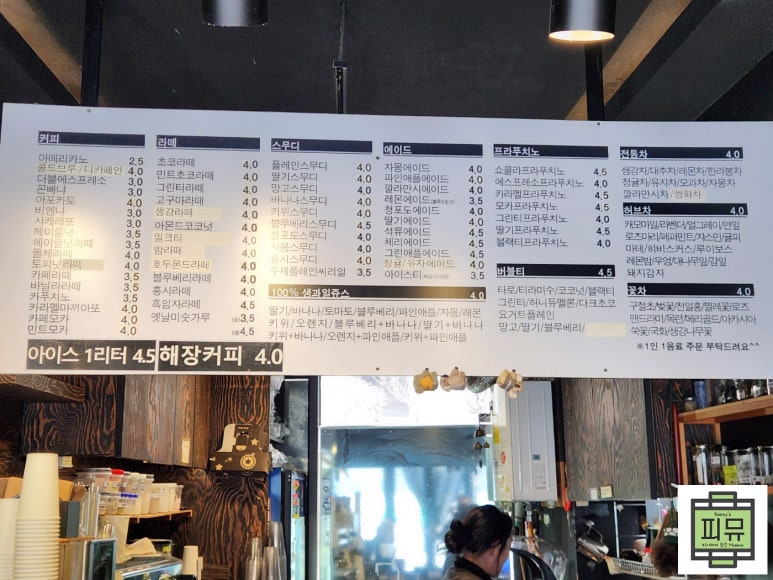 커피
아메리카노 2.5
콜드브루/디카페인 4.0
더블에스프레소 3.0
꼰빠냐 3.0
아포카토 4.0
비엔나 4.0
샤케레또 3.0
헤이즐넛 3.0
헤이즐넛라떼 4.0
돌체라떼 4.0
토피넛라떼 4.0
카페라떼 3.5
바닐라라떼 4.0
카푸치노 3.5
카라멜마끼아또 4.0
카페모카 4.0
민트모카 4.0
라떼
초코라떼 4.0
민트초코라떼 4.0
그린티라떼 4.0
고구마라떼 4.0
생강라떼
아몬드코코넛 4.0
밀크티
밤라떼
호두몬드라떼 4.0
블루베리라떼 4.0
홍시라떼 4.0
흑임자라떼 4.0
옛날미숫가루 (소)3.5
(대)4.5
스무디
플레인스무디 4.0
딸기스무디 4.0
망고스무디 4.0
바나나스무디 4.0
키위스무디 4.0
블루베리스무디 4.5
청포도스무디 4.0
자몽스무디 4.0
홈시스무디 4.0
수제플레인씨리얼 3.5
에이드
자몽에이드 4.0
파인애플에이드 4.0
깔라만시에이드 4.0
레몬에이드 4.0
청포도에이드 4.0
딸기에이드 4.0
석류에이드 4.0
체리에이드 4.0
그린애플에이드 4.0
청귤/유자에이드 4.0
아이스티 3.5
100% 생과일쥬스 4.0
딸기/바나나/토마토/블루베리/파인애플/자몽/레몬
키위/오렌지/블루베리+바나나/딸기+바나나
키위+바나나/오렌지+파인애플/키위+파인애플
프라푸치노
쇼콜라프라푸치노 4.5
에스프레소프라푸치노 4.5
카라멜프라푸치노 4.5
모카프라푸치노 4.5
그린티프라푸치노 4.5
딸기프라푸치노 4.5
블랙티프라푸치노 4.5
버블티 4.5
타로/티라미수/코코넛/블랙티
그린티/허니듀멜론/다크초코
요거트플레인
망고/딸기/블루베리/
전통차 4.0
생강차/대추차/레몬차/한라봉차
청귤차/유자차/모과차/자몽차
깔라만시차/쌍화차
허브차 4.0
캐모마일/라벤더/얼그레이/연잎
로즈마리/페퍼민트/쟈스민/귤피
마테/히비스커스/루이보스
레몬밤/우엉/대나무잎/감잎
돼지감자
꽃차 4.0
구절초/벚꽃/천일홍/찔레꽃/로즈
맨드라미/목련/메리골드/아카시아
쑥꽃/국화/생강나무꽃
※1인 1음료 주문 부탁드려요^^
아이스 1리터 4.5
해장커피 4.0
피뮤